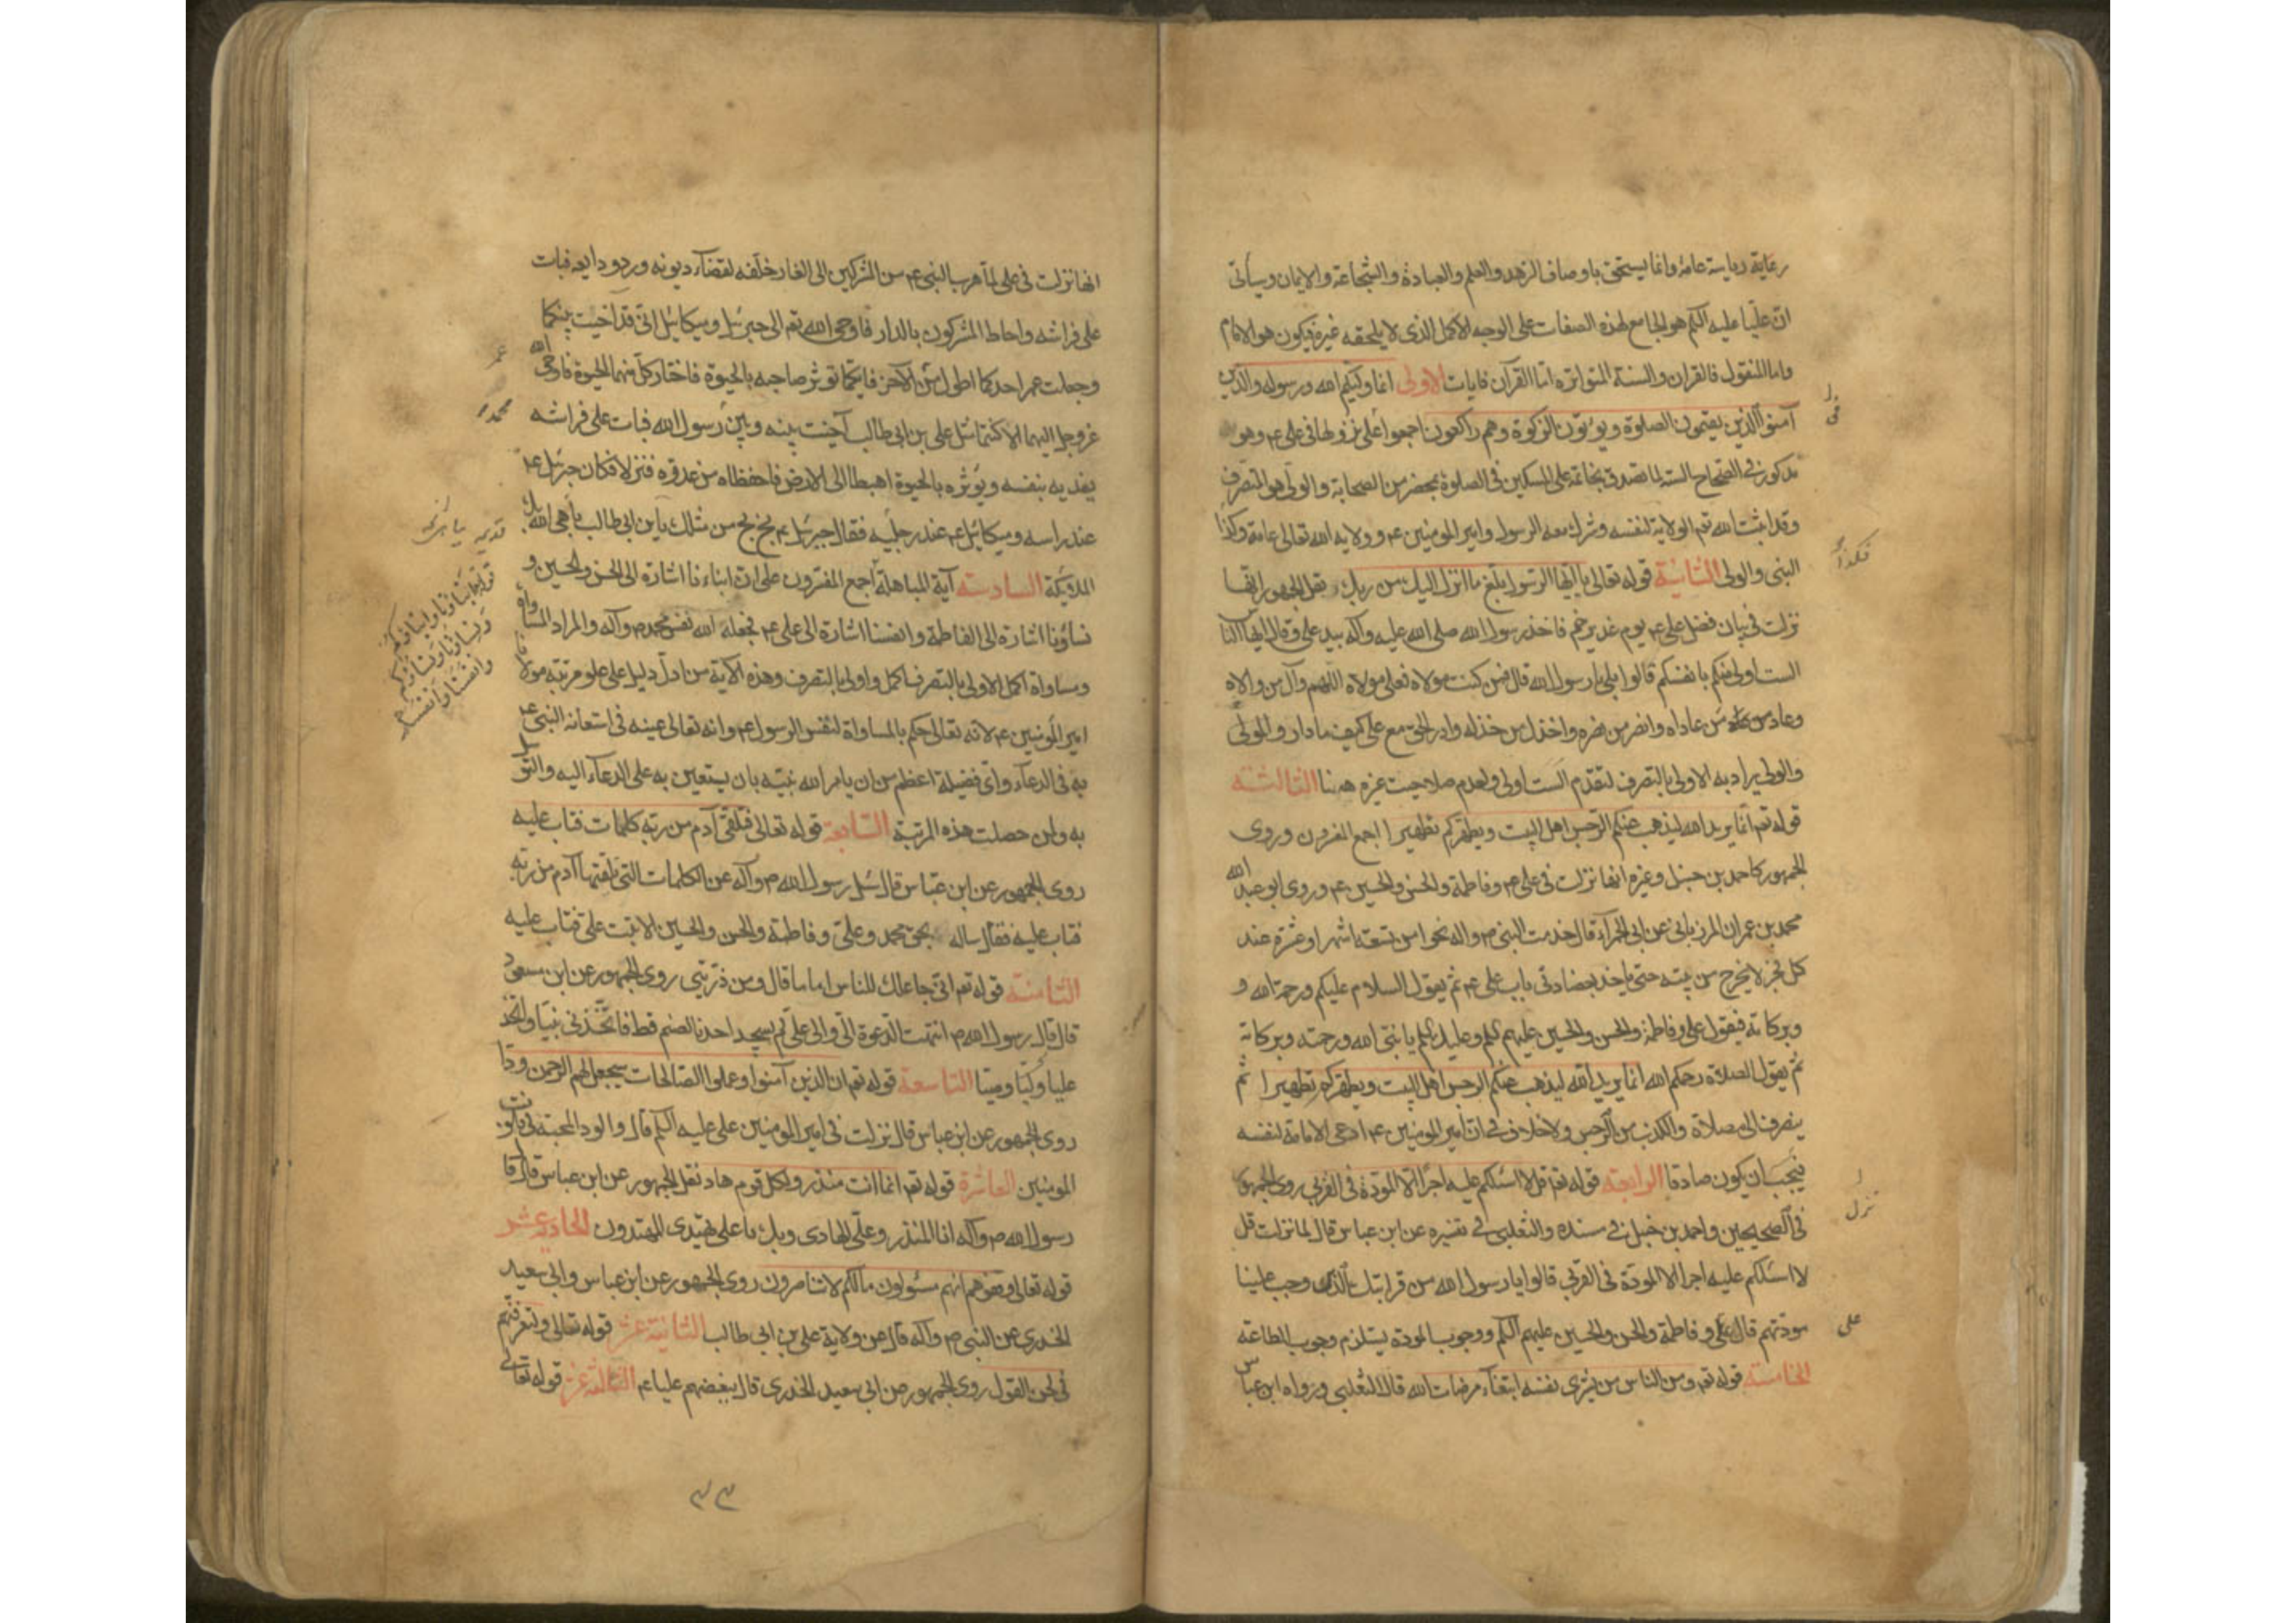 رعاية رياسة عامة وانما يستحق باوصاف الزهد والعلم والعبادة والشجاعة والايمان وسيأتي
ان عليا عليه السلم هو الجامع لهذه الصفات على الوجه الاكمل الذى لا يلحقه غيره فيكون هو الامام
واما المنقول فالقران والسنة المتواترة اما القرآن فايات الاولى انما وليكم الله ورسوله والذين
آمنوا الذين يقيمون الصلوة ويؤتون الزكوة وهم راكعون اجمعوا على نزولها فى على ع وهو
مذكور فى الصحاح الستة لما تصدق بخاتمه على المسكين فى الصلوة بمحضر من الصحابة والولى هو المتصرف
وقد اثبت الله تعم الولاية لنفسه وشرك معه الرسول وامير المومنين ع وولاية الله تعالى عامة وكذا
النبى والولى الثانية قوله تعالى يا ايها الرسول بلغ ما انزل اليك من ربك نقل الجمهور انها
نزلت فى بيان فضل على ع يوم غدير خم فاخذ رسول الله صلى الله عليه وآله بيد على وقال ايها الناس
الست اولى منكم بانفسكم قالوا بلى يا رسول الله قال فمن كنت مولاه فعلى مولاه اللهم وآل من والاه
وعاد من عاداه وانصر من نصره واخذل من خذله وادر الحق مع على كيف ما دار والمولى
والولى يراد به الاولى بالتصرف لتقدم الست اولى ولعدم صلاحيت غيره ههنا الثالثة
قوله تعم انما يريد الله ليذهب عنكم الرجس اهل البيت ويطهركم تطهيرا اجمع المفسرون وروى
الجمهور كاحمد بن حنبل وغيره انها نزلت فى على ع وفاطمة والحسن والحسين ع وروى ابو عبد الله
محمد بن عمران المرزبانى عن ابى الحمراء قال خدمت النبى ص واله نحوا من تسعة اشهر او عشرة عند
كل فجر لا يخرج من بيته حتى ياخذ بعضادتى باب على ع ثم يقول السلام عليكم ورحمة الله و
وبركاته فيقول على وفاطمة والحسن والحسين عليهم السلم وعليك السلم يا نبى الله ورحمته وبركاته
ثم يقول الصلاة رحمكم الله انما يريد الله ليذهب عنكم الرجس اهل البيت ويطهركم تطهيرا ثم
ينصرف الى مصلاه والكذب من الرجس ولا خلاف فى ان امير المومنين ع ادعى الامامة لنفسه
فيجب ان يكون صادقا الرابعة قوله تعم قل لا اسئلكم عليه اجرا الا المودة فى القربى روى الجمهور
فى الصحيحين واحمد بن حنبل فى مسنده والثعلبى فى تفسيره عن ابن عباس قال لما نزلت قل
لا اسئلكم عليه اجرا الا المودة فى القربى قالوا يا رسول الله من قرابتك الذين وجب علينا
مودتهم قال على وفاطمة والحسن والحسين عليهم السلم ووجوب المودة يستلزم وجوب الطاعة
الخامسة قوله تعم ومن الناس من يشرى نفسه ابتغاء مرضات الله قال الثعلبى ورواه ابن عباس
فكذا
نزل
على
انها نزلت فى على لما هرب النبى ع من المشركين الى الغار خلفه لقضاء ديونه ورد ودايعه فبات
على فراشه واحاط المشركون بالدار فاوحى الله تعم الى جبرئيل وميكائيل انى قد آخيت بينكما
وجعلت عمر احدكما اطول من الآخر فايكما يوثر صاحبه بالحيوة فاختار كل منهما الحيوة فاوحى الله
عز وجل اليهما الا كنتما مثل على بن ابى طالب آخيت بينه وبين رسول الله فبات على فراشه
يفديه بنفسه ويؤثره بالحيوة اهبطا الى الارض فاحفظاه من عدوه فنزلا فكان جبرئيل ع
عند راسه وميكائيل ع عند رجليه فقال جبرئيل ع بخ بخ من مثلك يا بن ابى طالب يباهى الله بك
الملائكة السادسة آية المباهلة اجمع المفسرون على ان ابناءنا اشارة الى الحسن والحسين و
نساؤنا اشارة الى الفاطمة وانفسنا اشارة الى على ع فجعله الله نفس محمد ص وآله والمراد المساواة
ومساواة اكمل الاولى بالتصرف اكمل واولى بالتصرف وهذه الاية من ادل دليل على علو مرتبة مولانا
امير المومنين ع لانه تعالى حكم بالمساواة لنفس الرسول ع وانه تعالى عينه فى استعانة النبى ع
به فى الدعاء واى فضيلة اعظم من ان يامر الله نبيه بان يستعين به على الدعاء اليه والتوسل
به ولمن حصلت هذه المرتبة السابعة قوله تعالى فتلقى آدم من ربه كلمات فتاب عليه
روى الجمهور عن ابن عباس قال سئل رسول الله ص وآله عن الكلمات التى تلقتها آدم من ربه
فتاب عليه فقال ساله بحق محمد وعلى وفاطمة والحسن والحسين الا تبت على فتاب عليه
الثامنة قوله تعم انى جاعلك للناس اماما قال ومن ذريتى روى الجمهور عن ابن مسعود
قال قال رسول الله ص انتهت الدعوة الى والى على لم يسجد احدنا لصنم قط فاتخذنى نبيا واتخذ
عليا وصيا التاسعة قوله تعم ان الذين آمنوا وعملوا الصالحات سيجعل لهم الرحمن ودا
روى الجمهور عن ابن عباس قال نزلت فى امير المومنين على عليه السلم قال والود المحبة فى قلوب
المومنين العاشرة قوله تعم انما انت منذر ولكل قوم هاد نقل الجمهور عن ابن عباس قال قال
رسول الله ص وآله انا المنذر وعلى الهادى وبك يا على يهتدى المهتدون الحادى عشر
قوله تعالى وقفوهم انهم مسئولون مالكم لا تناصرون روى الجمهور عن ابن عباس وابى سعيد
الخدرى عن النبى ص وآله قال عن ولاية على بن ابى طالب الثانية عشر قوله تعالى ولتعرفنهم
فى لحن القول روى الجمهور عن ابى سعيد الخدرى قال ببغضهم عليا ع الثالثة عشر قوله تعالى
عمر
محمد
قوله ابناءنا وابناءكم
ونساءنا ونساءكم
وانفسنا وانفسكم